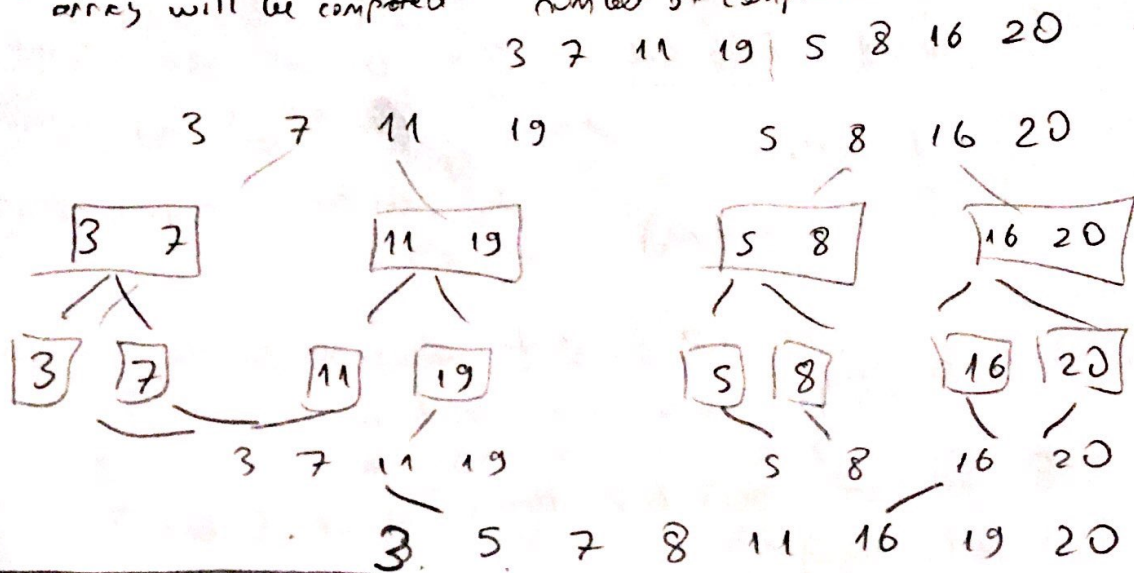 array will be compared number of
3 7 11 19 | 5 8 16 20
3 7 11 19 5 8 16 20
3 7 11 19 5 8 16 20
3 7 11 19 5 8 16 20
3 7 11 19 5 8 16 20
3 5 7 8 11 16 19 20